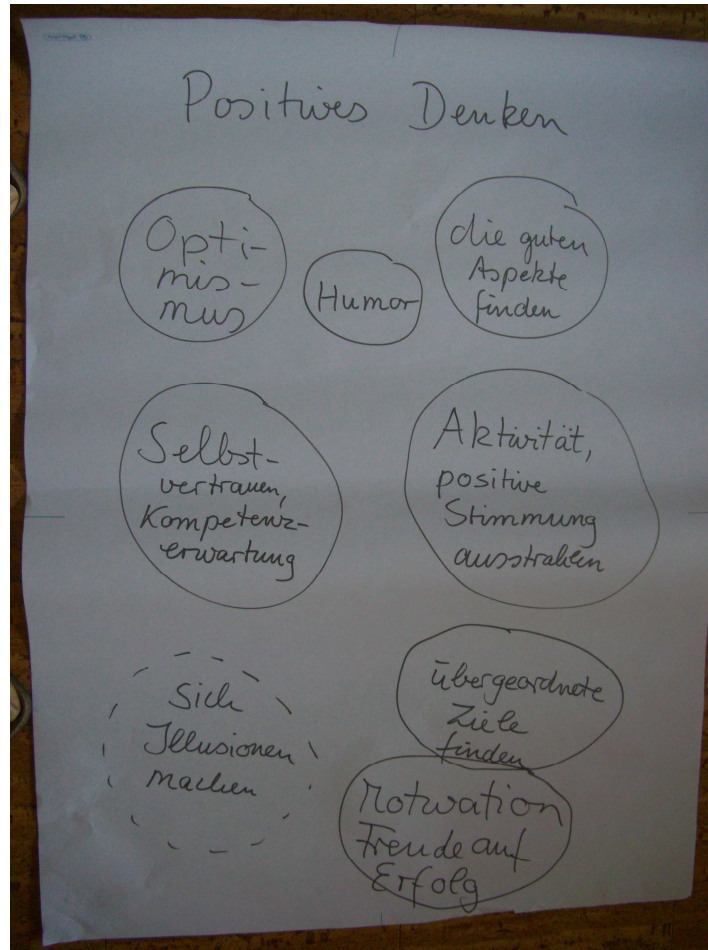 Positives Denken
Opti-
mis-
mus
Humor
die guten
Aspekte
finden
Selbst-
vertrauen,
Kompetenz-
erwartung
Aktivität,
positive
Stimmung
ausstrahlen
Sich
Illusionen
machen
übergeordnete
Ziele
finden
Motivation
Freude auf
Erfolg